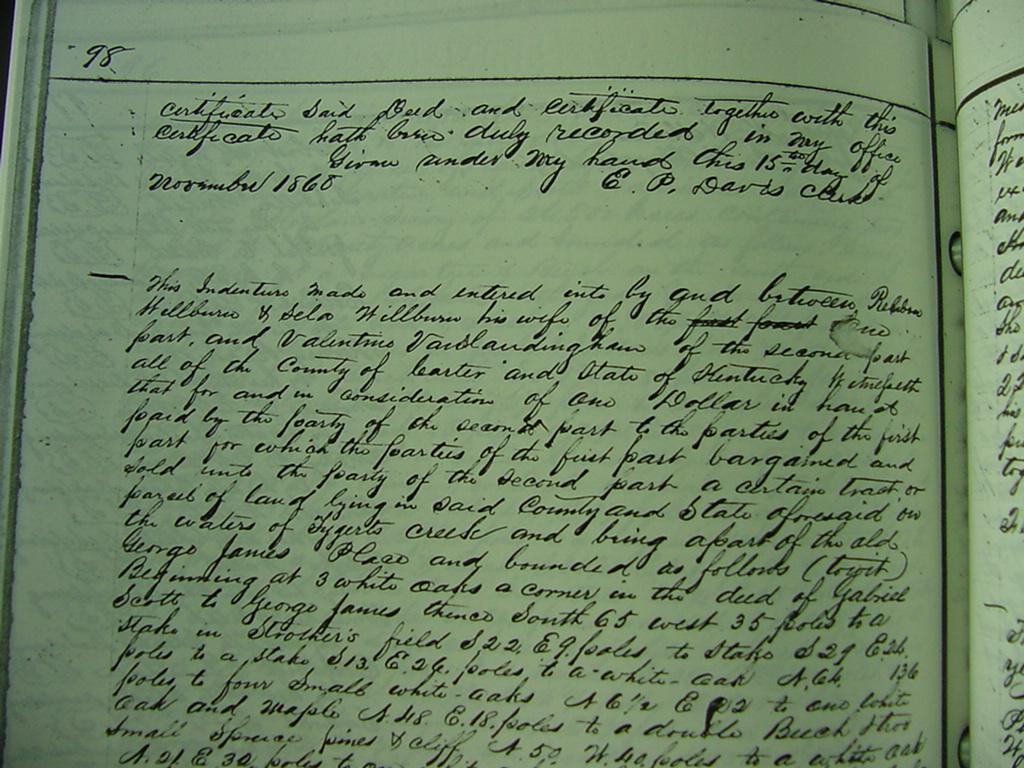 98
certificate Said Deed and certificate together with this
certificate hath been duly recorded in my office
Given under my hand this 15th day of
November 1868 E. P. Davis Clerk
This Indenture made and entered into by and between Reuben
Willburn & Wife of the first part One
part, and Valentine Vanlandingham of the second part
all of the County of Carter and State of Kentucky Witnesseth
that for and in consideration of One Dollar in hand
paid by the party of the second part to the parties of the first
part for which the parties of the first part bargained and
sold unto the party of the second part a certain tract or
parcel of land lying in said County and State aforesaid on
the waters of Tygerts creek and being apart of the old
George James Place and bounded as follows (towit)
Beginning at 3 white oaks a corner in the deed of Gabriel
Scott to George James thence South 65 west 35 poles to a
stake in Strother's field S 22 E 9 poles to stake S 29 E 24
poles to a stake S 13 E 26 poles to a white oak N. 64 136
poles to four small white oaks N 6 1/2 E 22 to one white
oak and maple N. 48. E. 18. poles to a double Beech & two
small Spruce pines & cliff N. 50 W. 40 poles to a white oak
N. 21. E 32 poles to